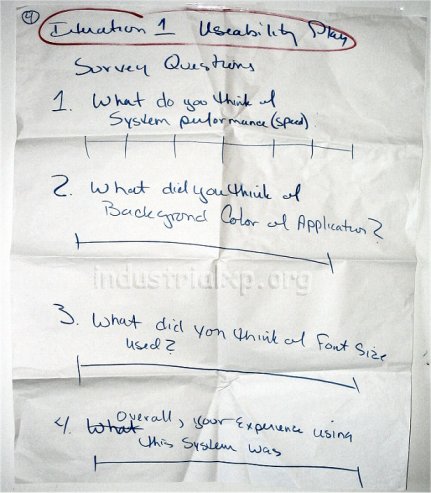 4
Iteration 1 Useability Play
Survey Questions
1. What do you think of
System performance (speed)
2. What did you think of
Backgrond Color of Application?
industrialxp.org
3. What did you think of Font Size
used?
4. What Overall, your Experience using
this System was